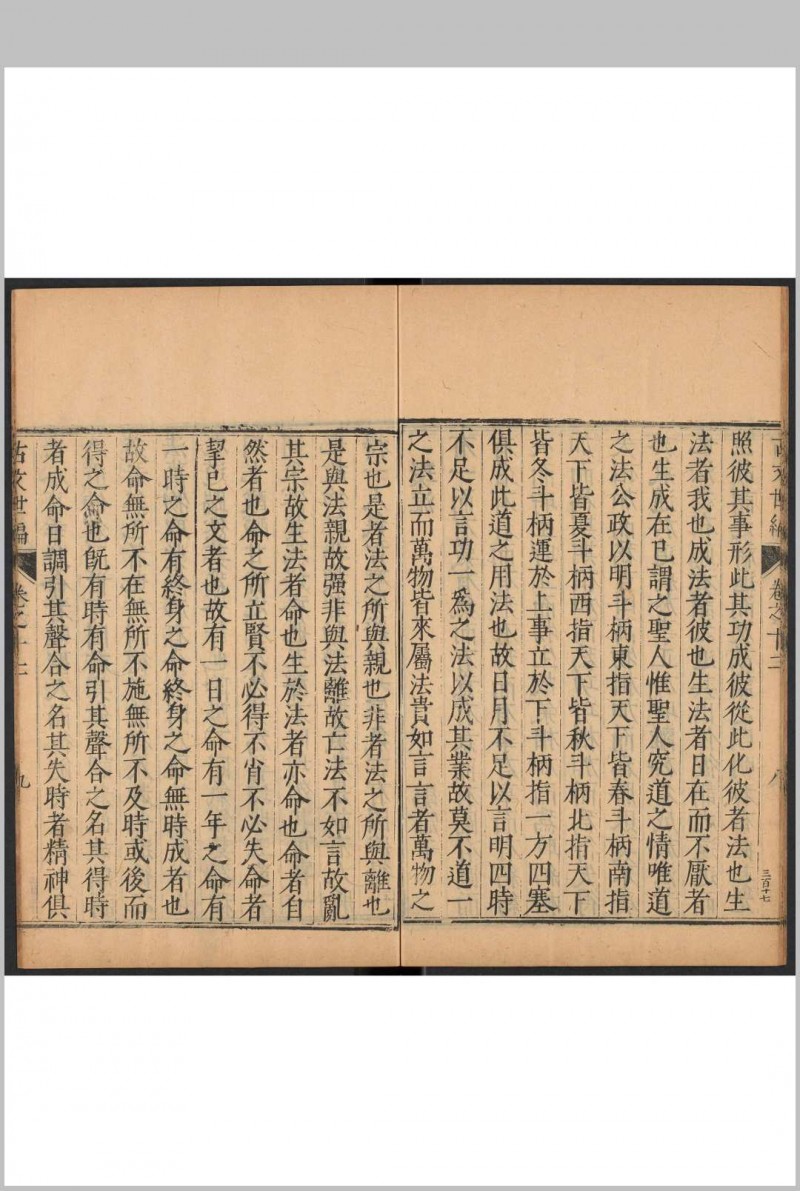 古文世編
卷之十三
八
三百十七
照彼其事形此其功成彼從此化彼者法也生
法者我也成法者彼也生法者日在而不厭者
也生成在已謂之聖人惟聖人究道之情唯道
之法公政以明斗柄東指天下皆春斗柄南指
天下皆夏斗柄西指天下皆秋斗柄北指天下
皆冬斗柄運於上事立於下斗柄指一方四塞
俱成此道之用法也故日月不足以言明四時
不足以言功一爲之法以成其業故莫不道一
之法立而萬物皆來屬法貴如言言者萬物之
宗也是者法之所與親也非者法之所與離也
是與法親故强非與法離故亡法不如言故亂
其宗故生法者命也生於法者亦命也命者自
然者也命之所立賢不必得不肖不必失命者
挈已之文者也故有一日之命有一年之命有
一時之命有終身之命終身之命無時成者也
故命無所不在無所不施無所不及時或後而
得之命也旣有時有命引其聲合之名其得時
者成命日調引其聲合之名其失時者精神俱
古文世編
卷之十三
九